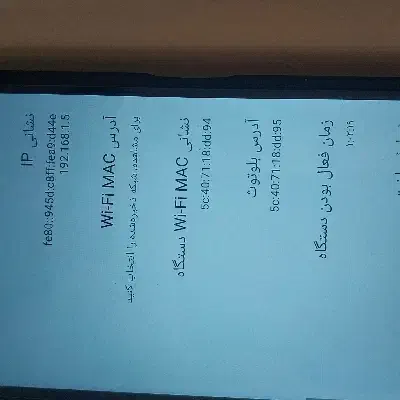 نشانی IP
fe80::945d:c8ff:fea9:d44e
192.168.1.5
آدرس Wi-Fi MAC
برای مشاهده، شبکه ذخیره‌شده را انتخاب کنید
نشانی Wi-Fi MAC دستگاه
5c:40:71:18:dd:94
آدرس بلوتوث
5c:40:71:18:dd:95
زمان فعال بودن دستگاه